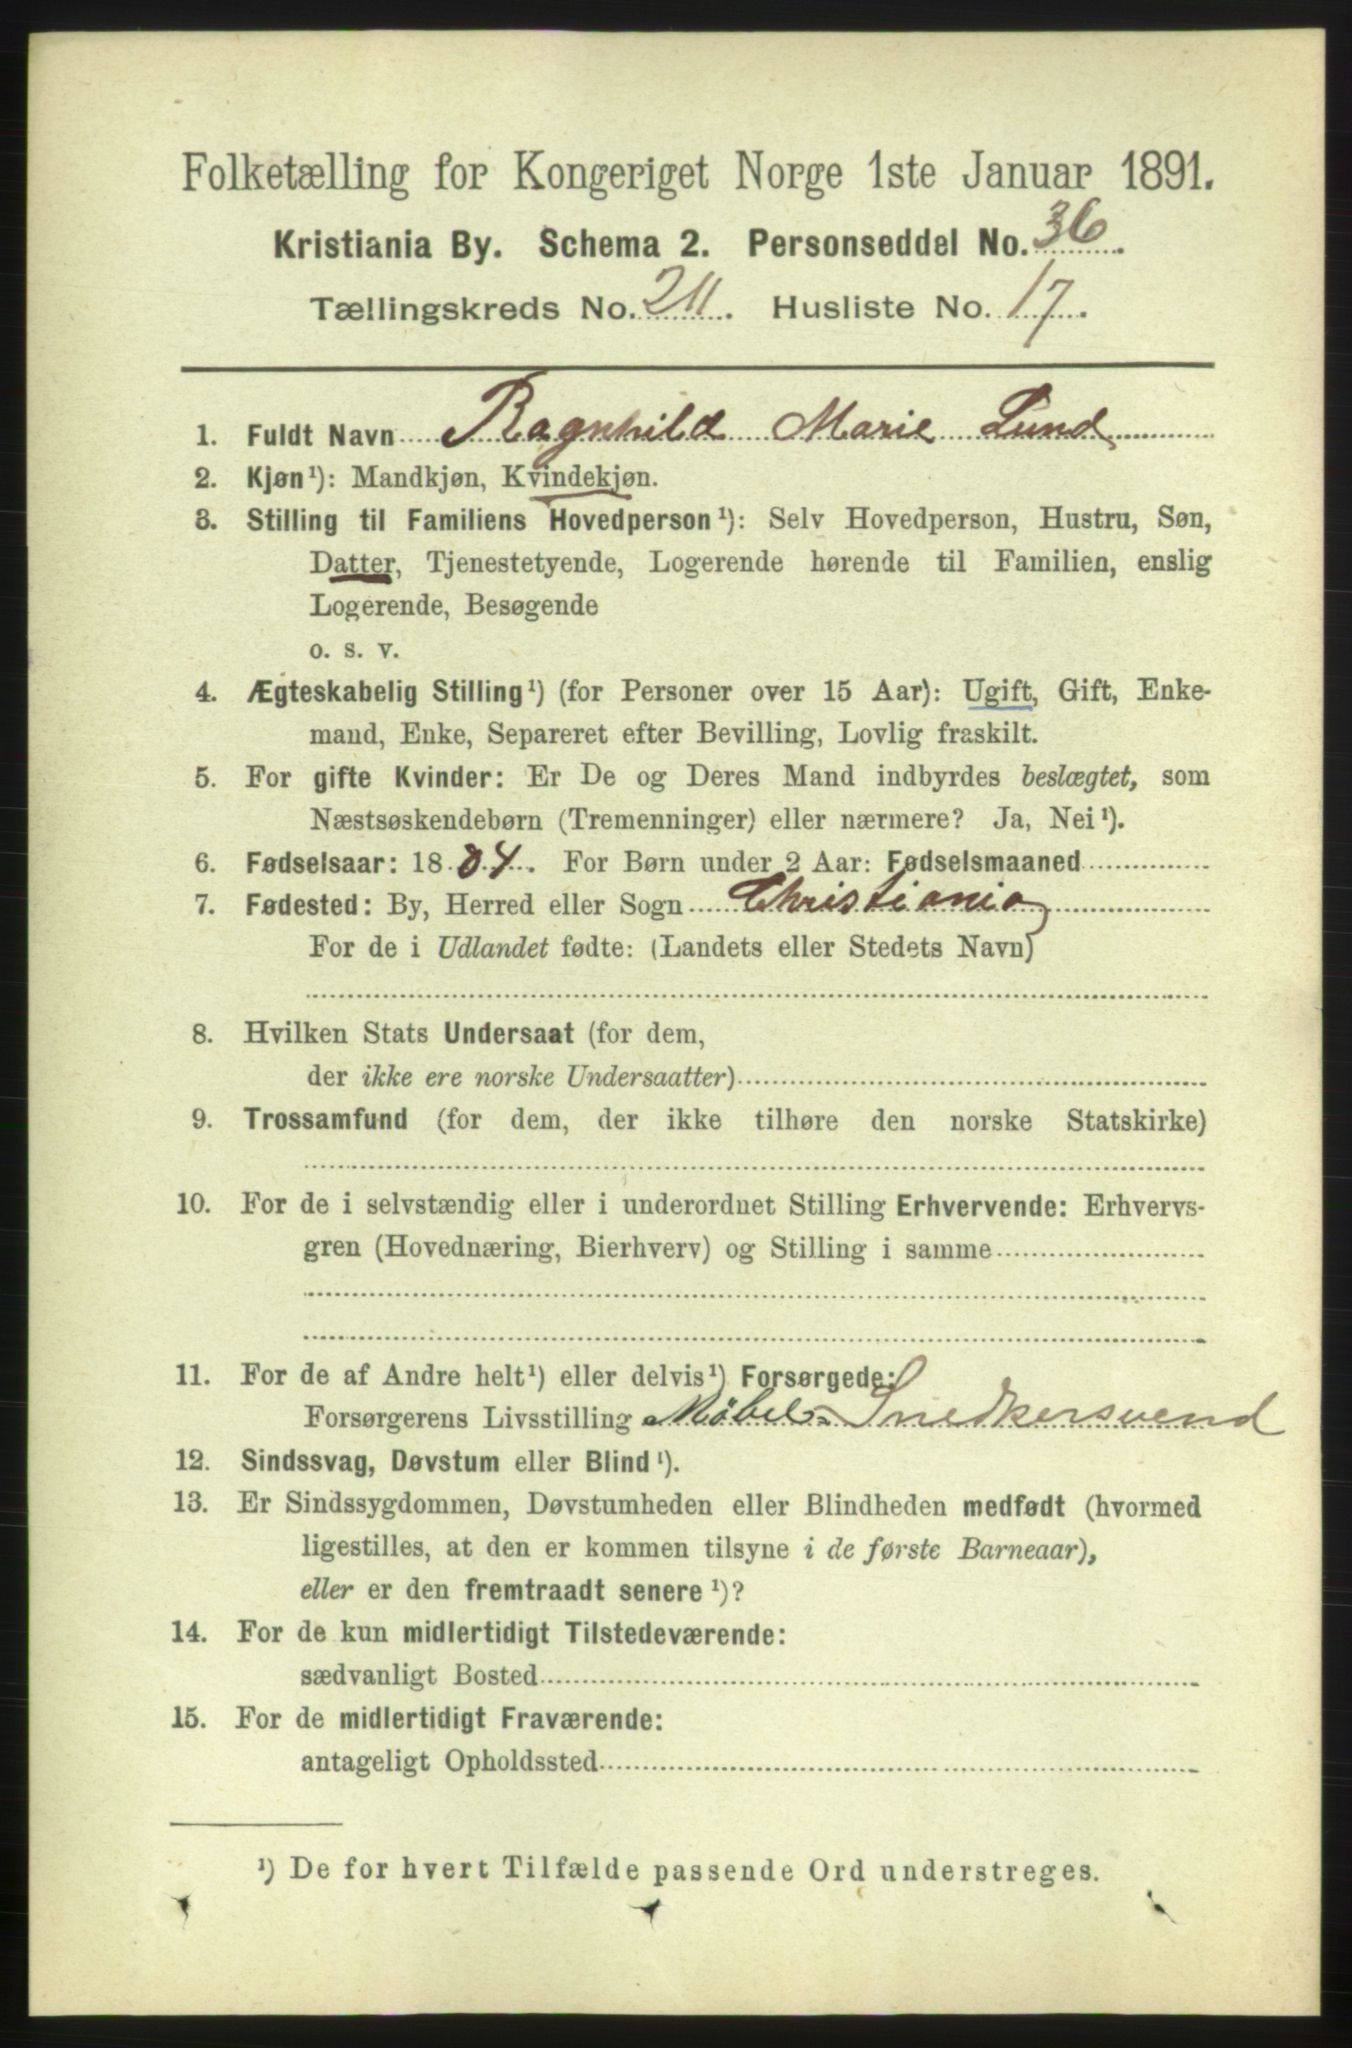 Folketælling for Kongeriget Norge 1ste Januar 1891.
Kristiania By. Schema 2. Personseddel No. 36.
Tællingskreds No. 211. Husliste No. 17.
1. Fuldt Navn Ragnhild Marie Lund
2. Kjøn¹): Mandkjøn, Kvindekjøn.
3. Stilling til Familiens Hovedperson¹): Selv Hovedperson, Hustru, Søn,
Datter, Tjenestetyende, Logerende hørende til Familien, enslig
Logerende, Besøgende
o. s. v.
4. Ægteskabelig Stilling¹) (for Personer over 15 Aar): Ugift, Gift, Enke-
mand, Enke, Separeret efter Bevilling, Lovlig fraskilt.
5. For gifte Kvinder: Er De og Deres Mand indbyrdes beslægtet, som
Næstsøskendebørn (Tremenninger) eller nærmere? Ja, Nei¹).
6. Fødselsaar: 1884. For Børn under 2 Aar: Fødselsmaaned
7. Fødested: By, Herred eller Sogn Christiania
For de i Udlandet fødte: (Landets eller Stedets Navn)
8. Hvilken Stats Undersaat (for dem,
der ikke ere norske Undersaatter)
9. Trossamfund (for dem, der ikke tilhøre den norske Statskirke)
10. For de i selvstændig eller i underordnet Stilling Erhvervende: Erhvervs-
gren (Hovednæring, Bierhverv) og Stilling i samme
11. For de af Andre helt¹) eller delvis¹) Forsørgede:
Forsørgerens Livsstilling Møbel-Snedkersvend
12. Sindssvag, Døvstum eller Blind¹).
13. Er Sindssygdommen, Døvstumheden eller Blindheden medfødt (hvormed
ligestilles, at den er kommen tilsyne i de første Barneaar),
eller er den fremtraadt senere¹)?
14. For de kun midlertidigt Tilstedeværende:
sædvanligt Bosted
15. For de midlertidigt Fraværende:
antageligt Opholdssted
¹) De for hvert Tilfælde passende Ord understreges.